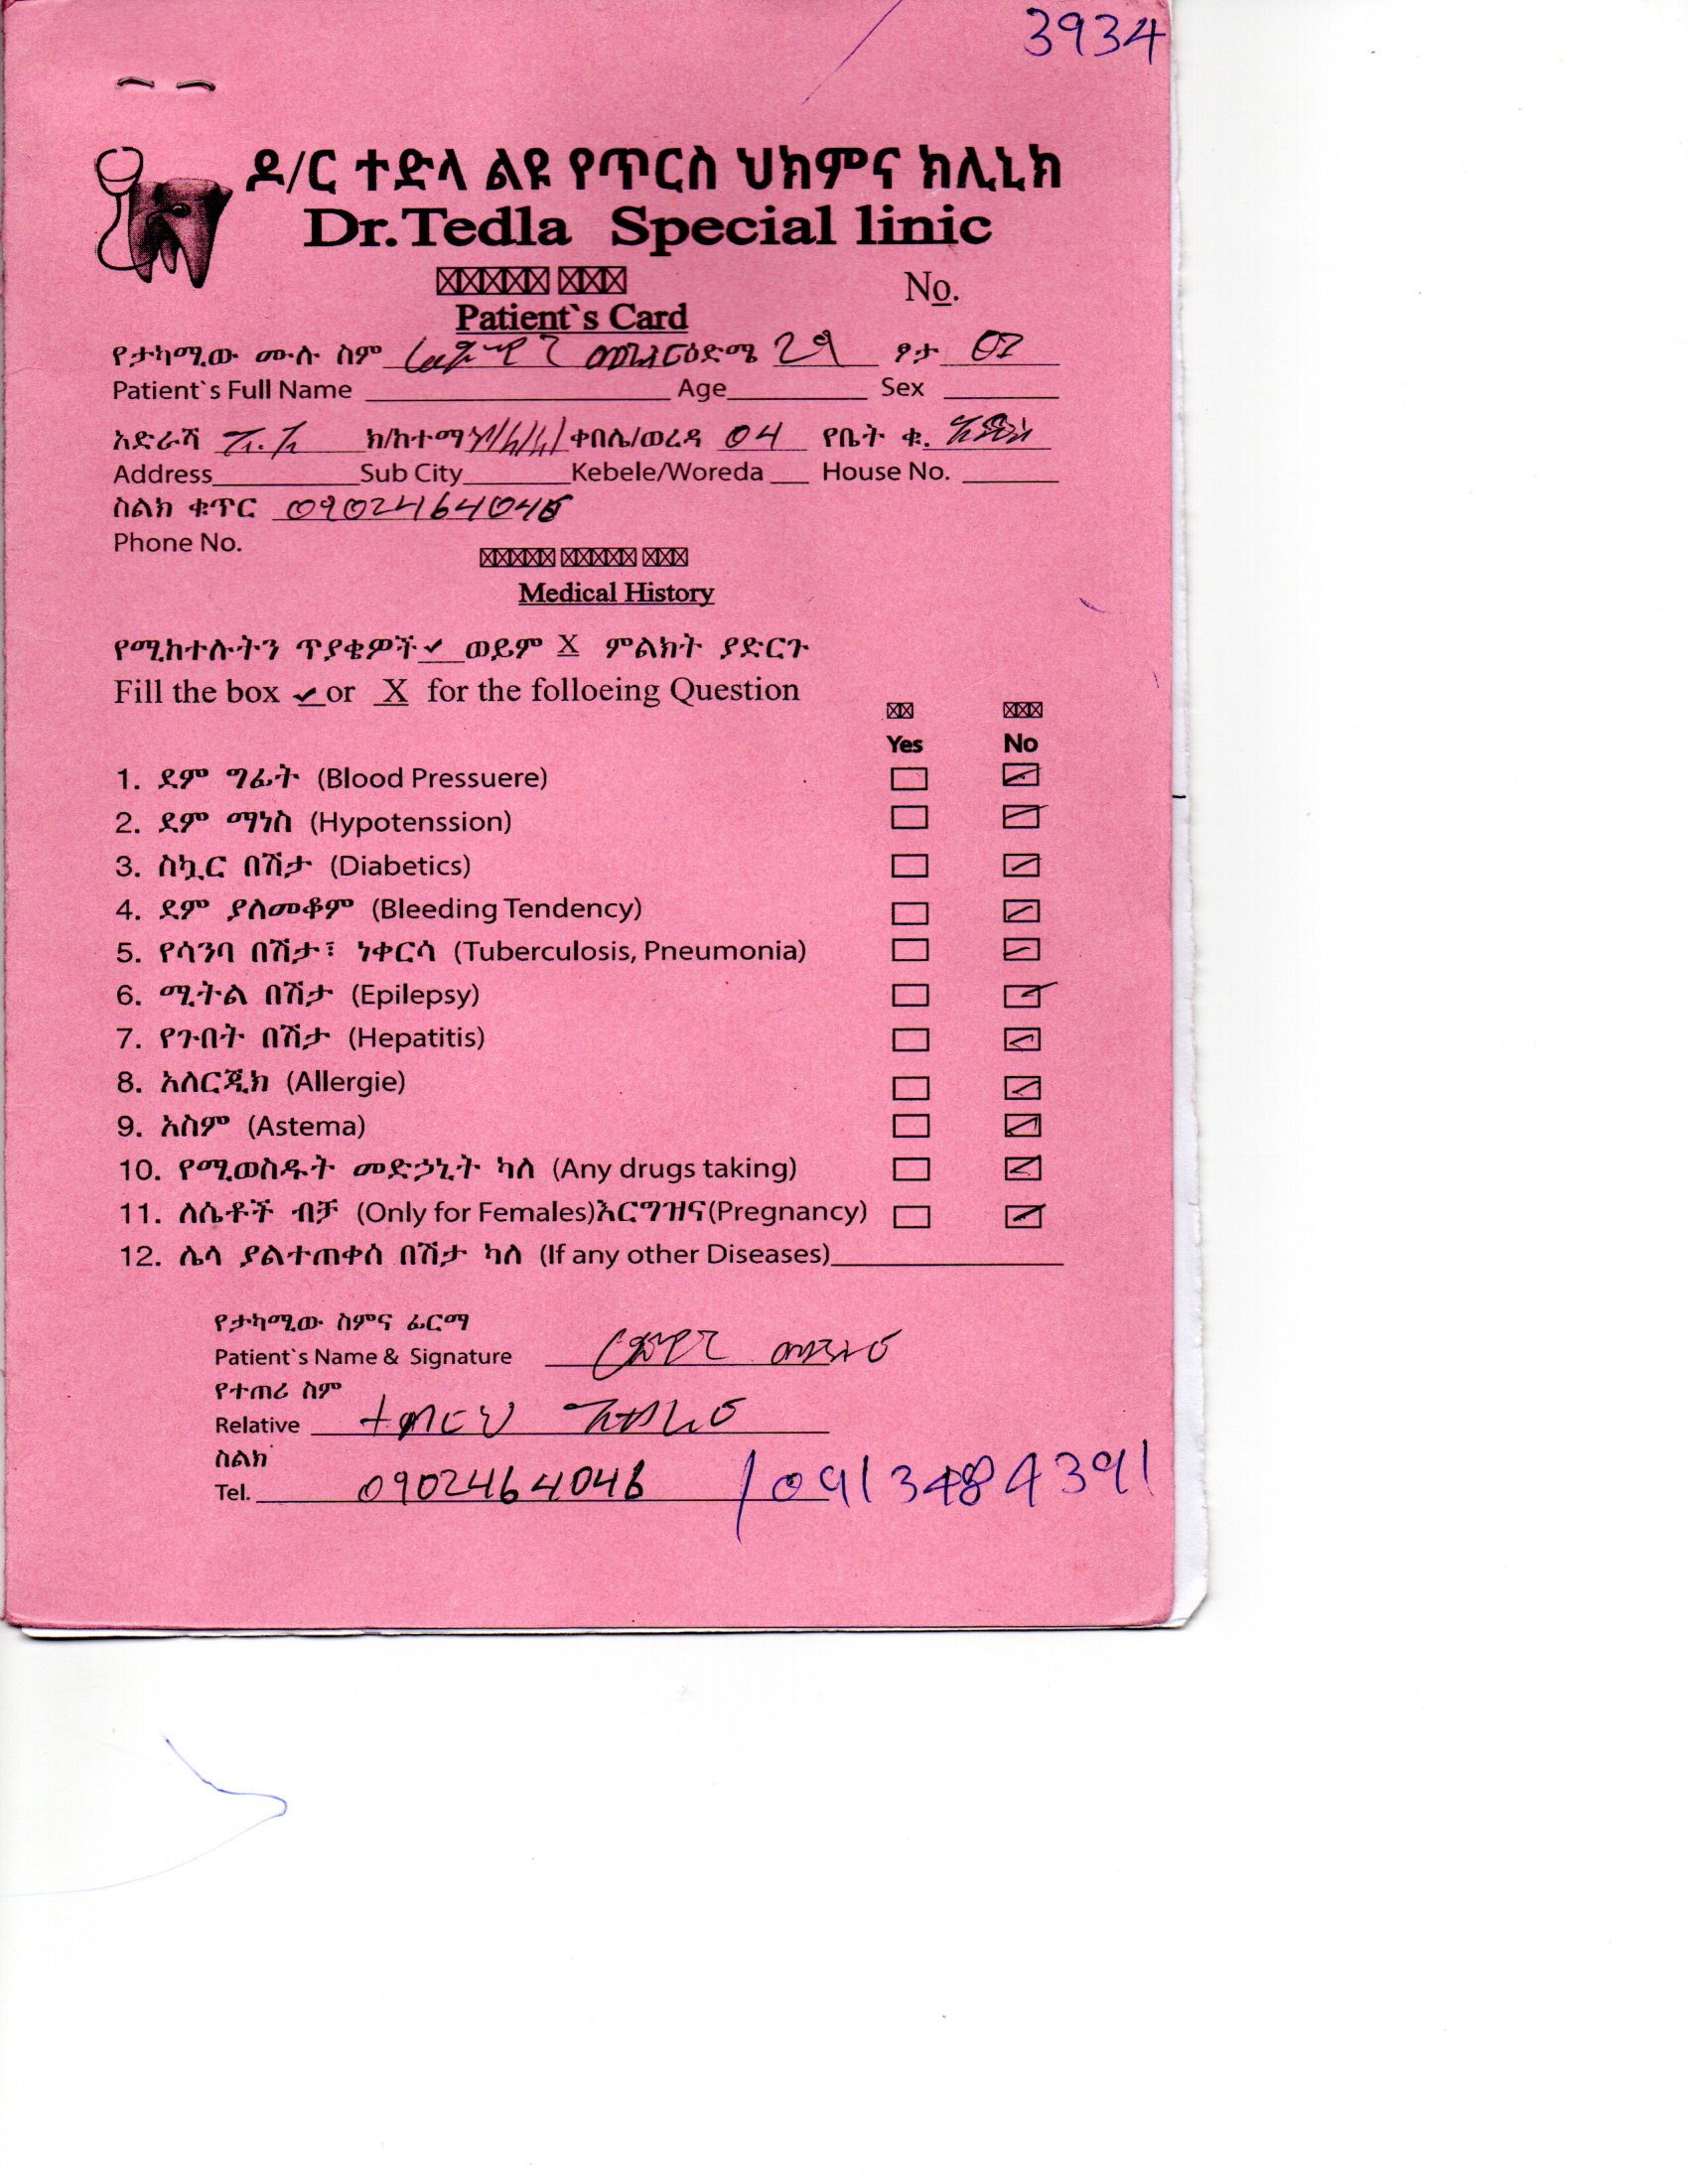 3934
ዶ/ር ተድላ ልዩ የጥርስ ህክምና ክሊኒክ
Dr.Tedla Special linic
No.
Patient`s Card
የታካሚው ሙሉ ስም ዕድሜ 29 ፆታ
Patient`s Full Name Age Sex
አድራሻ አ.አ ክ/ከተማ ቀበሌ/ወረዳ 04 የቤት ቁ.
Address Sub City Kebele/Woreda House No.
ስልክ ቁጥር 0902464046
Phone No.
Medical History
የሚከተሉትን ጥያቄዎች ✓ ወይም X ምልክት ያድርጉ
Fill the box ✓ or X for the folloeing Question
Yes No
1. ደም ግፊት (Blood Pressuere)
2. ደም ማነስ (Hypotenssion)
3. ስኳር በሽታ (Diabetics)
4. ደም ያለመቆም (Bleeding Tendency)
5. የሳንባ በሽታ፣ ነቀርሳ (Tuberculosis, Pneumonia)
6. ሚትል በሽታ (Epilepsy)
7. የጉበት በሽታ (Hepatitis)
8. አለርጂክ (Allergie)
9. አስም (Astema)
10. የሚወስዱት መድኃኒት ካለ (Any drugs taking)
11. ለሴቶች ብቻ (Only for Females)እርግዝና(Pregnancy)
12. ሌላ ያልተጠቀሰ በሽታ ካለ (If any other Diseases)
የታካሚው ስምና ፊርማ
Patient`s Name & Signature
የተጠሪ ስም
Relative
ስልክ
Tel. 0902464046 / 0913484391